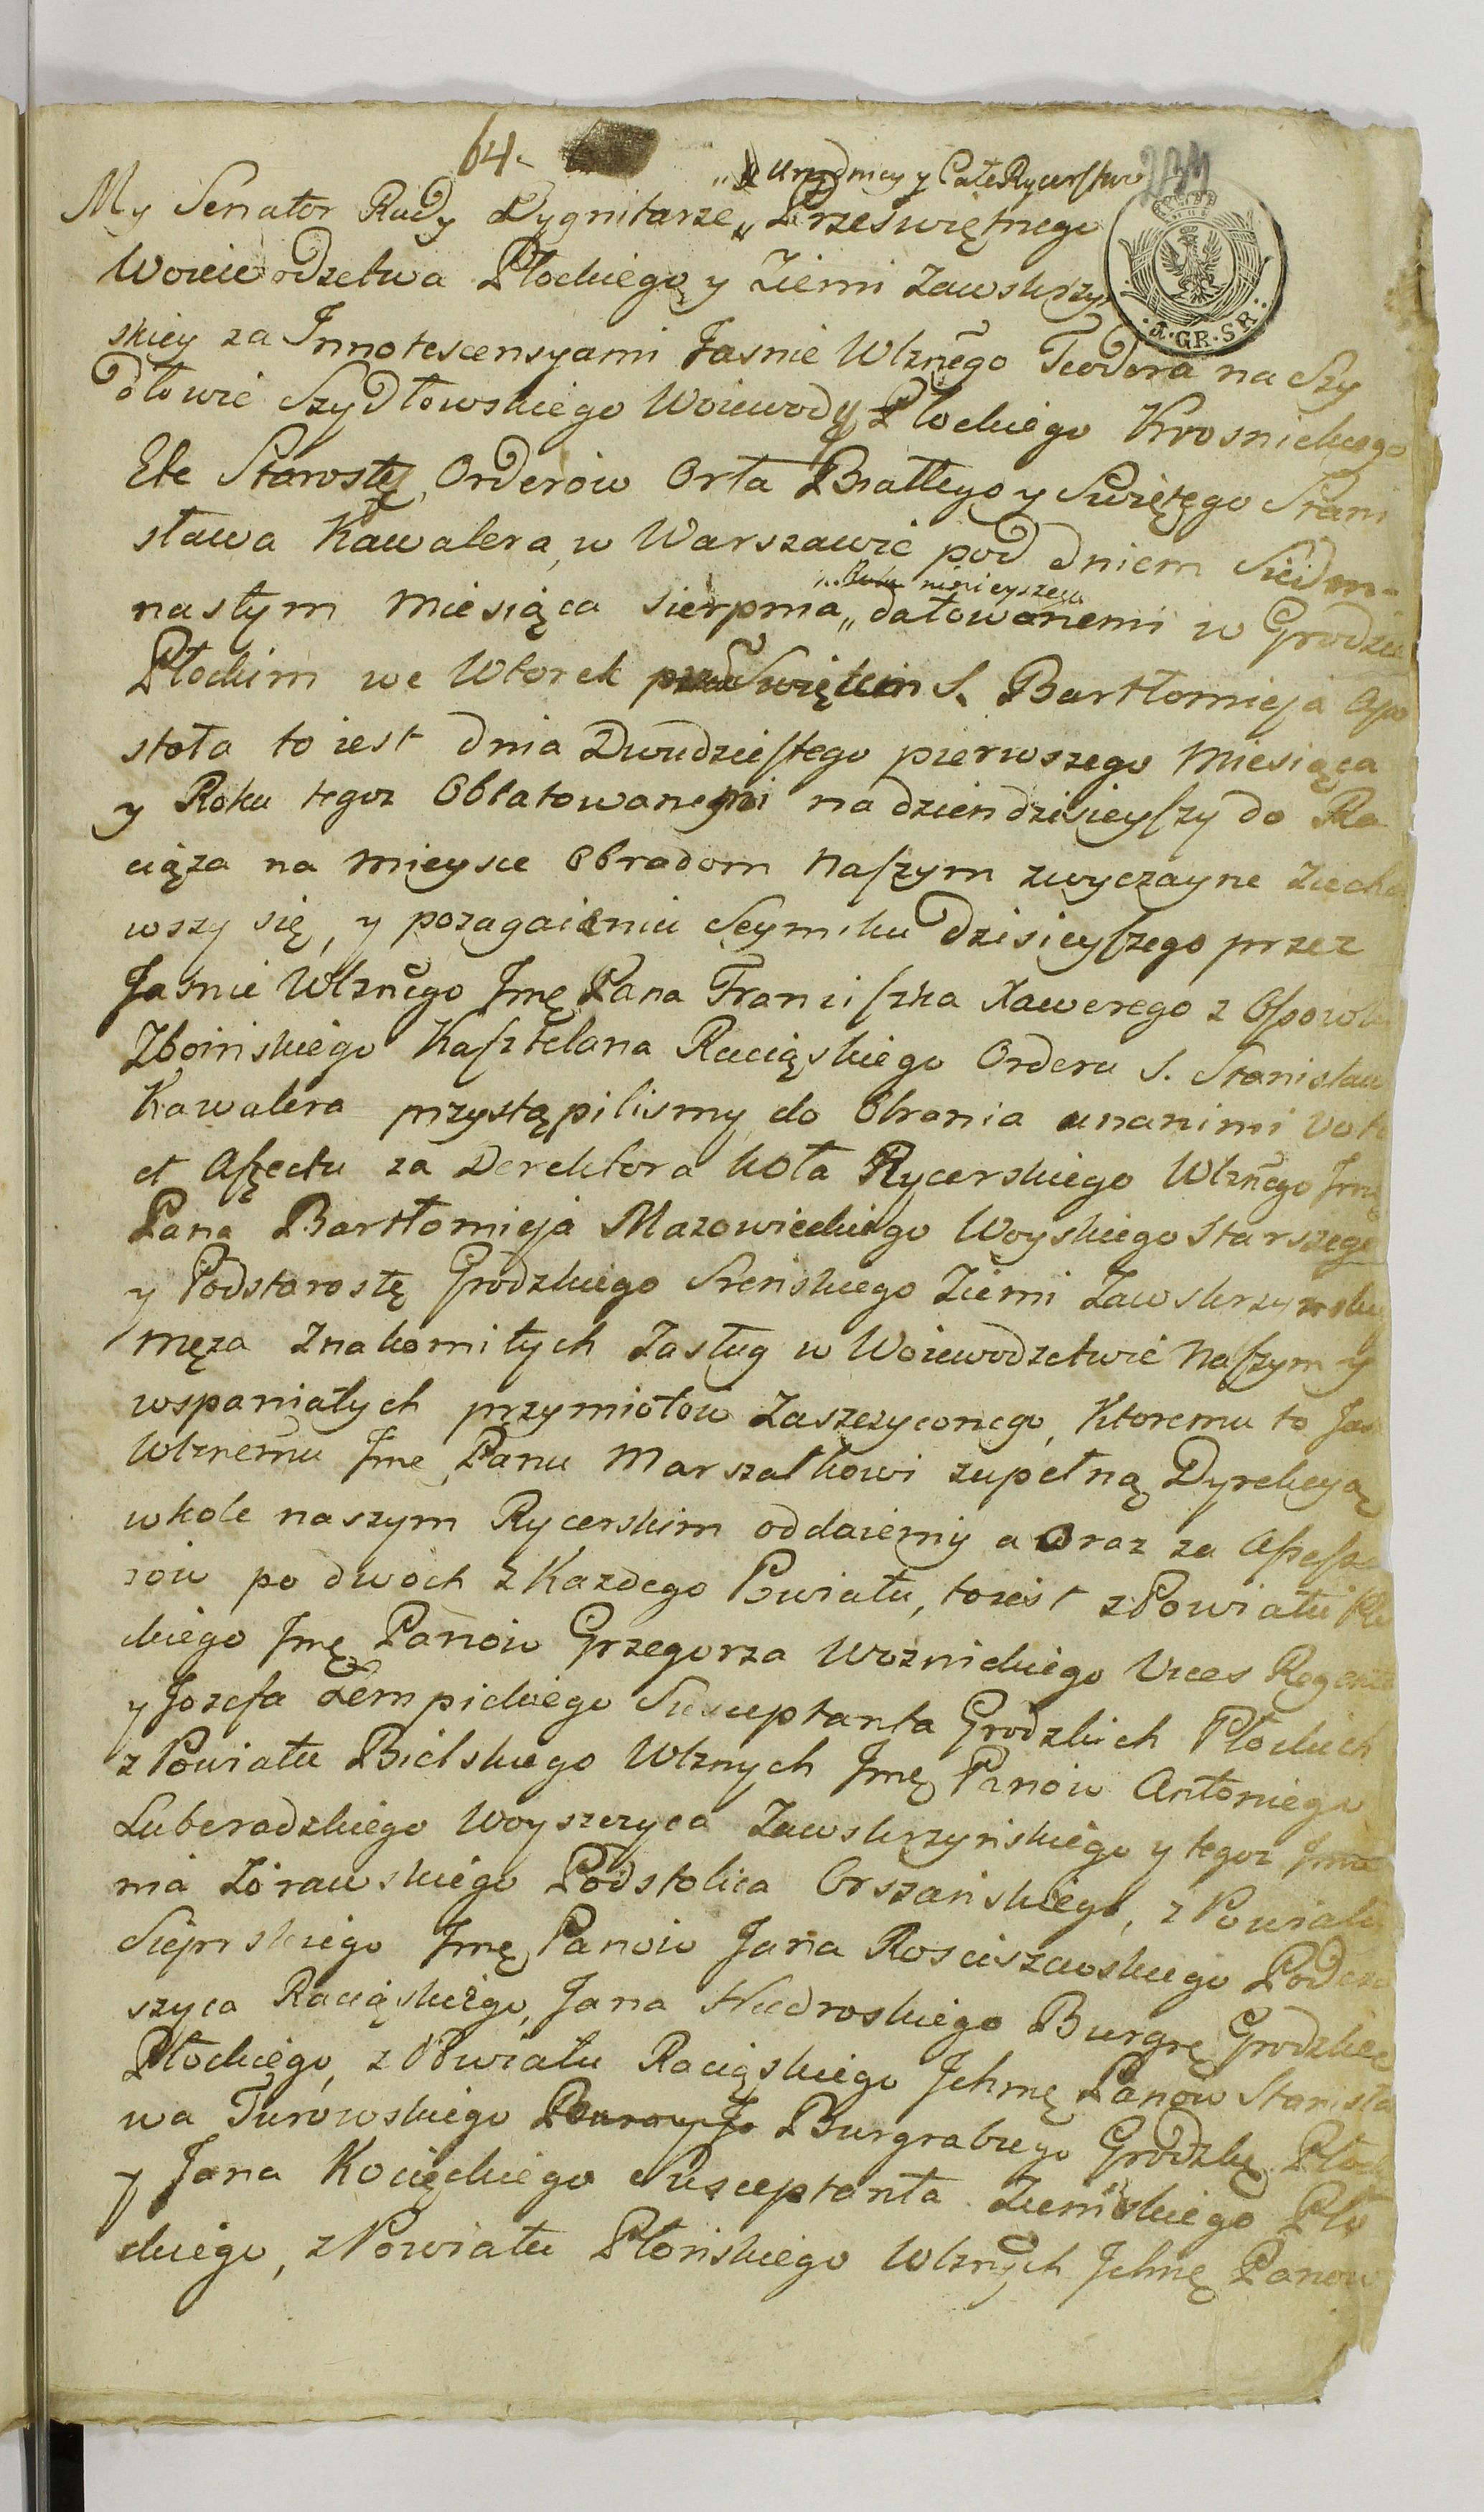 64. 234
„ Urzędnicy y Całe Rycerſtwo
My Senator Rady Dygnitarze „ Przeświętnego
Woiewodzctwa Płockiego y Ziemi Zawskrzyń
skiey za Innotescensyami Jasnie Wlznego Teodora na Szy
dłowie Szydłowskiego Woiewody Płockiego Krosnickiego
Etc Starosty, Orderów Orła Białłego y Swiętego Stani
sława Kawalera, w Warszawie pod dniem Siedm-
„ Roku ninieyszego
nastym Miesiąca Sierpnia „ datowanemi w Grodzie
Płockim we Wtorek przed Swiętem S. Bartłomieja Apo
stoła to iest dnia Dwudzieſtego pierwszego Miesiąca
y Roku tegoz Oblatowanemi na dzien dzisieyſzy do Ra
ciąza na mieysce Obradom Naſzym zwyczayne Ziecha
wszy się, y pozagaieniu Seymiku dzisieyſzego przez
Jasnie Wlznego Jmę Pana Franciſzka Xawerego z Oſsowki
Zboinskiego Kaſztelana Raciąskiego Orderu S. Stanisław
Kawalera przystąpilismy do Obrania unanimi Voto
et Affectu za Derektora Koła Rycerskiego Wlznego Jmę
Pana Bartłomieja Mazowieckiego Woyskiego Starszego
y Podstarostę Grodzkiego Srenskiego Ziemi Zawskrzynskiey
męza Znakomitych Zasług w Woiewodzctwie Naſzym y
wspaniałych przymiotow Zaszczyconego, Ktoremu to Jas
Wlznemu Jme Panu Marszałkowi zupełną Dyrekcyą
w kole naszym Rycerskim oddaiemy a Oraz za Aſseſso
row po dwoch z Kazdego Powiatu, toiest z Powiatu Pło
ckiego Jmę Panow Grzegorza Woznickiego Vices Regenta
y Jozefa Łempickiego Susceptanta Grodzkich Płockich
z Powiatu Bielskiego Wlznych Jmę Panow Antoniego
Luberadzkiego Woyszczyca Zawskrzynskiego y tegoz Jmie
nia Zorawskiego Podstolica Orszanskiego, z Powiatu
Sieprskiego Jmę Panow Jana Rosciszewskiego Podcza
szyca Raciąskiego, Jana Niedroskiego Burgrę Grodzkie
Płockiego, z Powiatu Raciąskiego Jchmę Panow Stanisła
wa Turowskiego Burgrabzego Grodzkę Płock
y Jana Kocięckiego Susceptanta Ziemskiego Pło
ckiego, z Powiatu Płońskiego Wlznych Jchmę Panow
A.GR.SR.